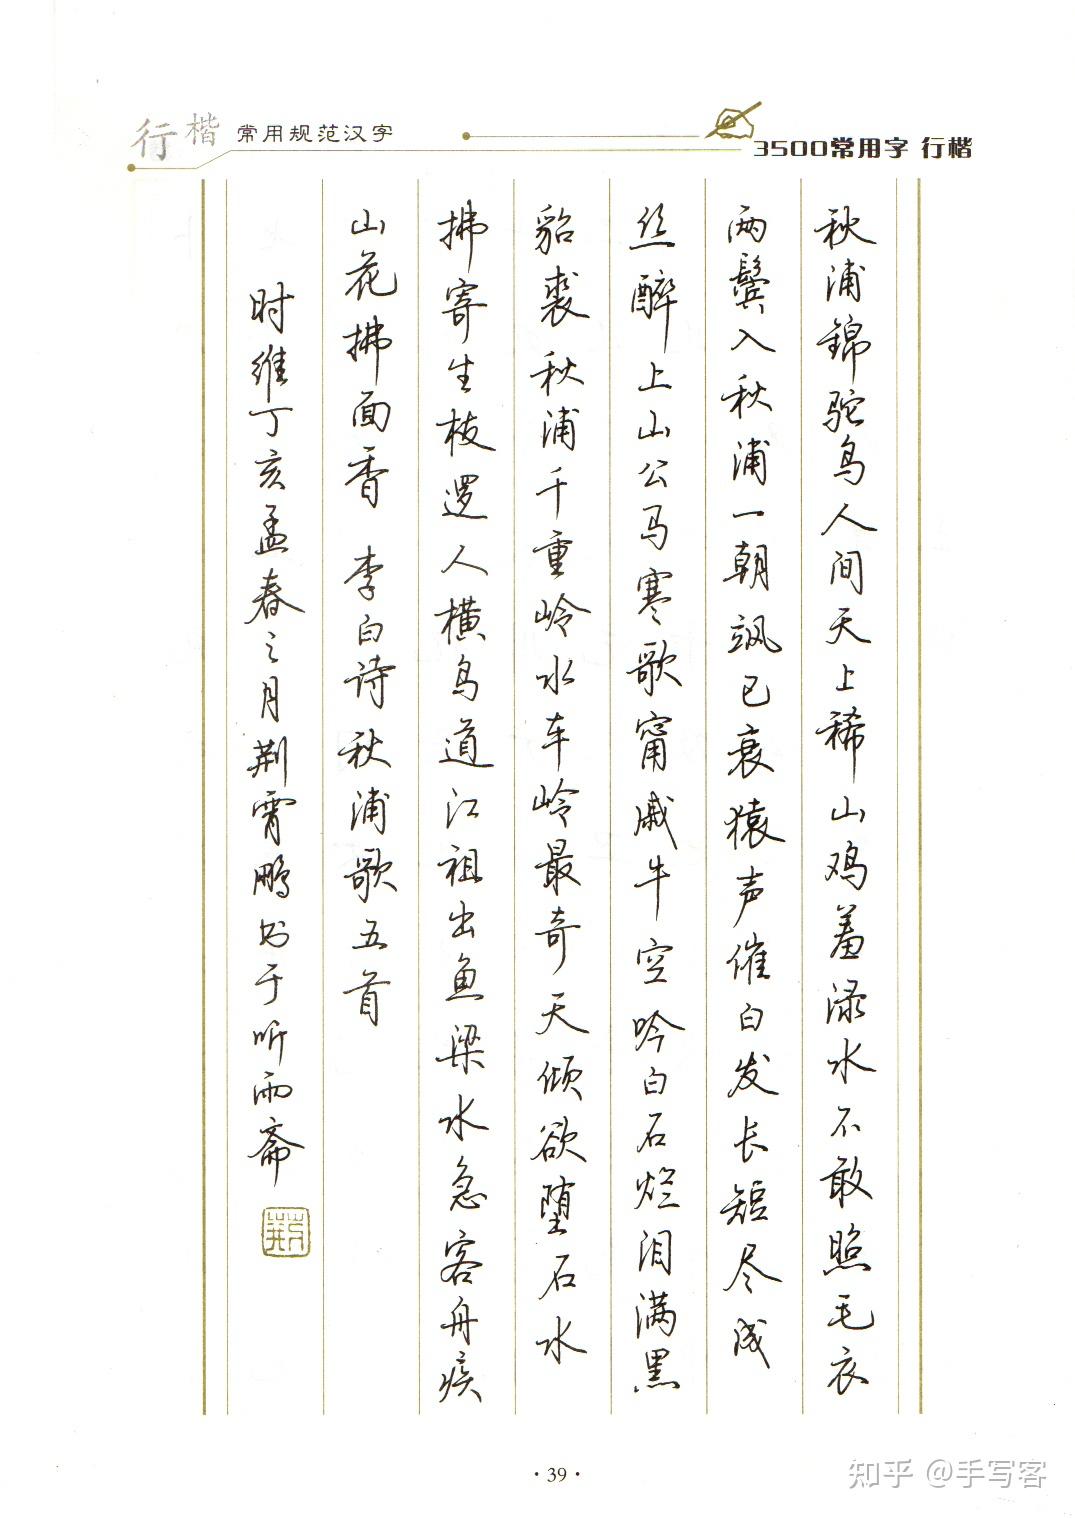 行楷 常用规范汉字
3500常用字 行楷
秋浦锦驼鸟人间天上稀山鸡羞渌水不敢照毛衣
两鬓入秋浦一朝飒已衰猿声催白发长短尽成
丝醉上山公马寒歌甯戚牛空吟白石烂泪满黑
貂裘秋浦千重岭水车岭最奇天倾欲堕石水
拂寄生枝逻人横鸟道江祖出鱼梁水急客舟疾
山花拂面香 李白诗秋浦歌五首
时维丁亥孟春之月荆霄鹏书于听雨斋
荆
·39·
知乎 @手写客